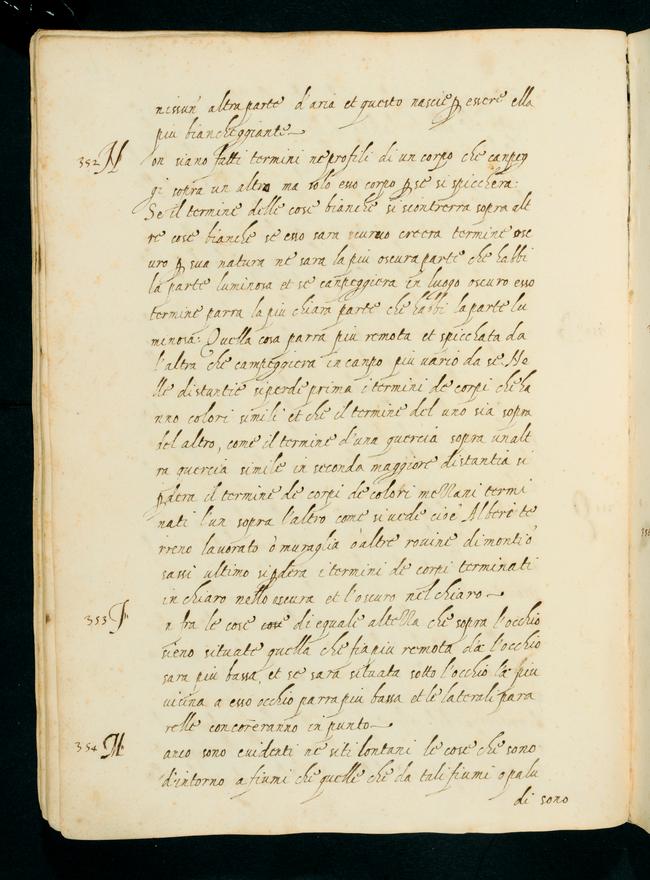 nissun' altra parte d'aria et questo nascie ꝑ essere ella
piu biancheggiante
352 Non siano fatti termini ne profili di un corpo che canpeg
gi sopra un altro ma solo esso corpo ꝑ se si spicchera:
Se il termine delle cose bianche si scontrerra sopra alt
re cose bianche se esso sara creera termine osc
uro ꝑ sua natura ne sara la piu oscura parte che habbi
la parte luminosa et se canpeggiera in luogo oscuro esso
termine parra la piu chiara parte che habbi la parte lu
minosa: Quella cosa parra piu remota et spicchata da
l'altra che campeggiera in canpo piu vario da se. Ne
lle distantie si perde prima i termini de corpi che ha
nno colori simili et che il termine del uno sia sopra
del altro, come il termine d'una quercia sopra un alt
ra quercia simile in seconda maggiore distantia si
ꝑdera il termine de corpi de colori mezzani termi
nati l'un sopra l'altro come si vede cioè Alberi te
rreno lavorato ò muraglia ò altre rovine di monti ò
sassi ultimo si ꝑdera i termini de corpi terminati
in chiaro nello oscura et l'oscuro nel chiaro
353 In fra le cose di equale altezza che sopra l'occhio
sieno situate quella che fia piu remota da l'occhio
sara piu bassa, et se sara situata sotto l'occhio la piu
vicina a esso occhio parra piu bassa et le laterali para
relle concoreranno in punto
354 Manco sono evidenti ne siti lontani le cose che sono
d'intorno a fiumi che quelle che da tali fiumi o palu
di sono